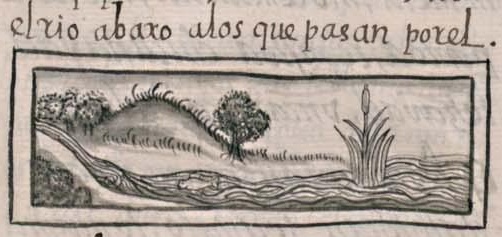 el rio abaxo alos que pasan porel.